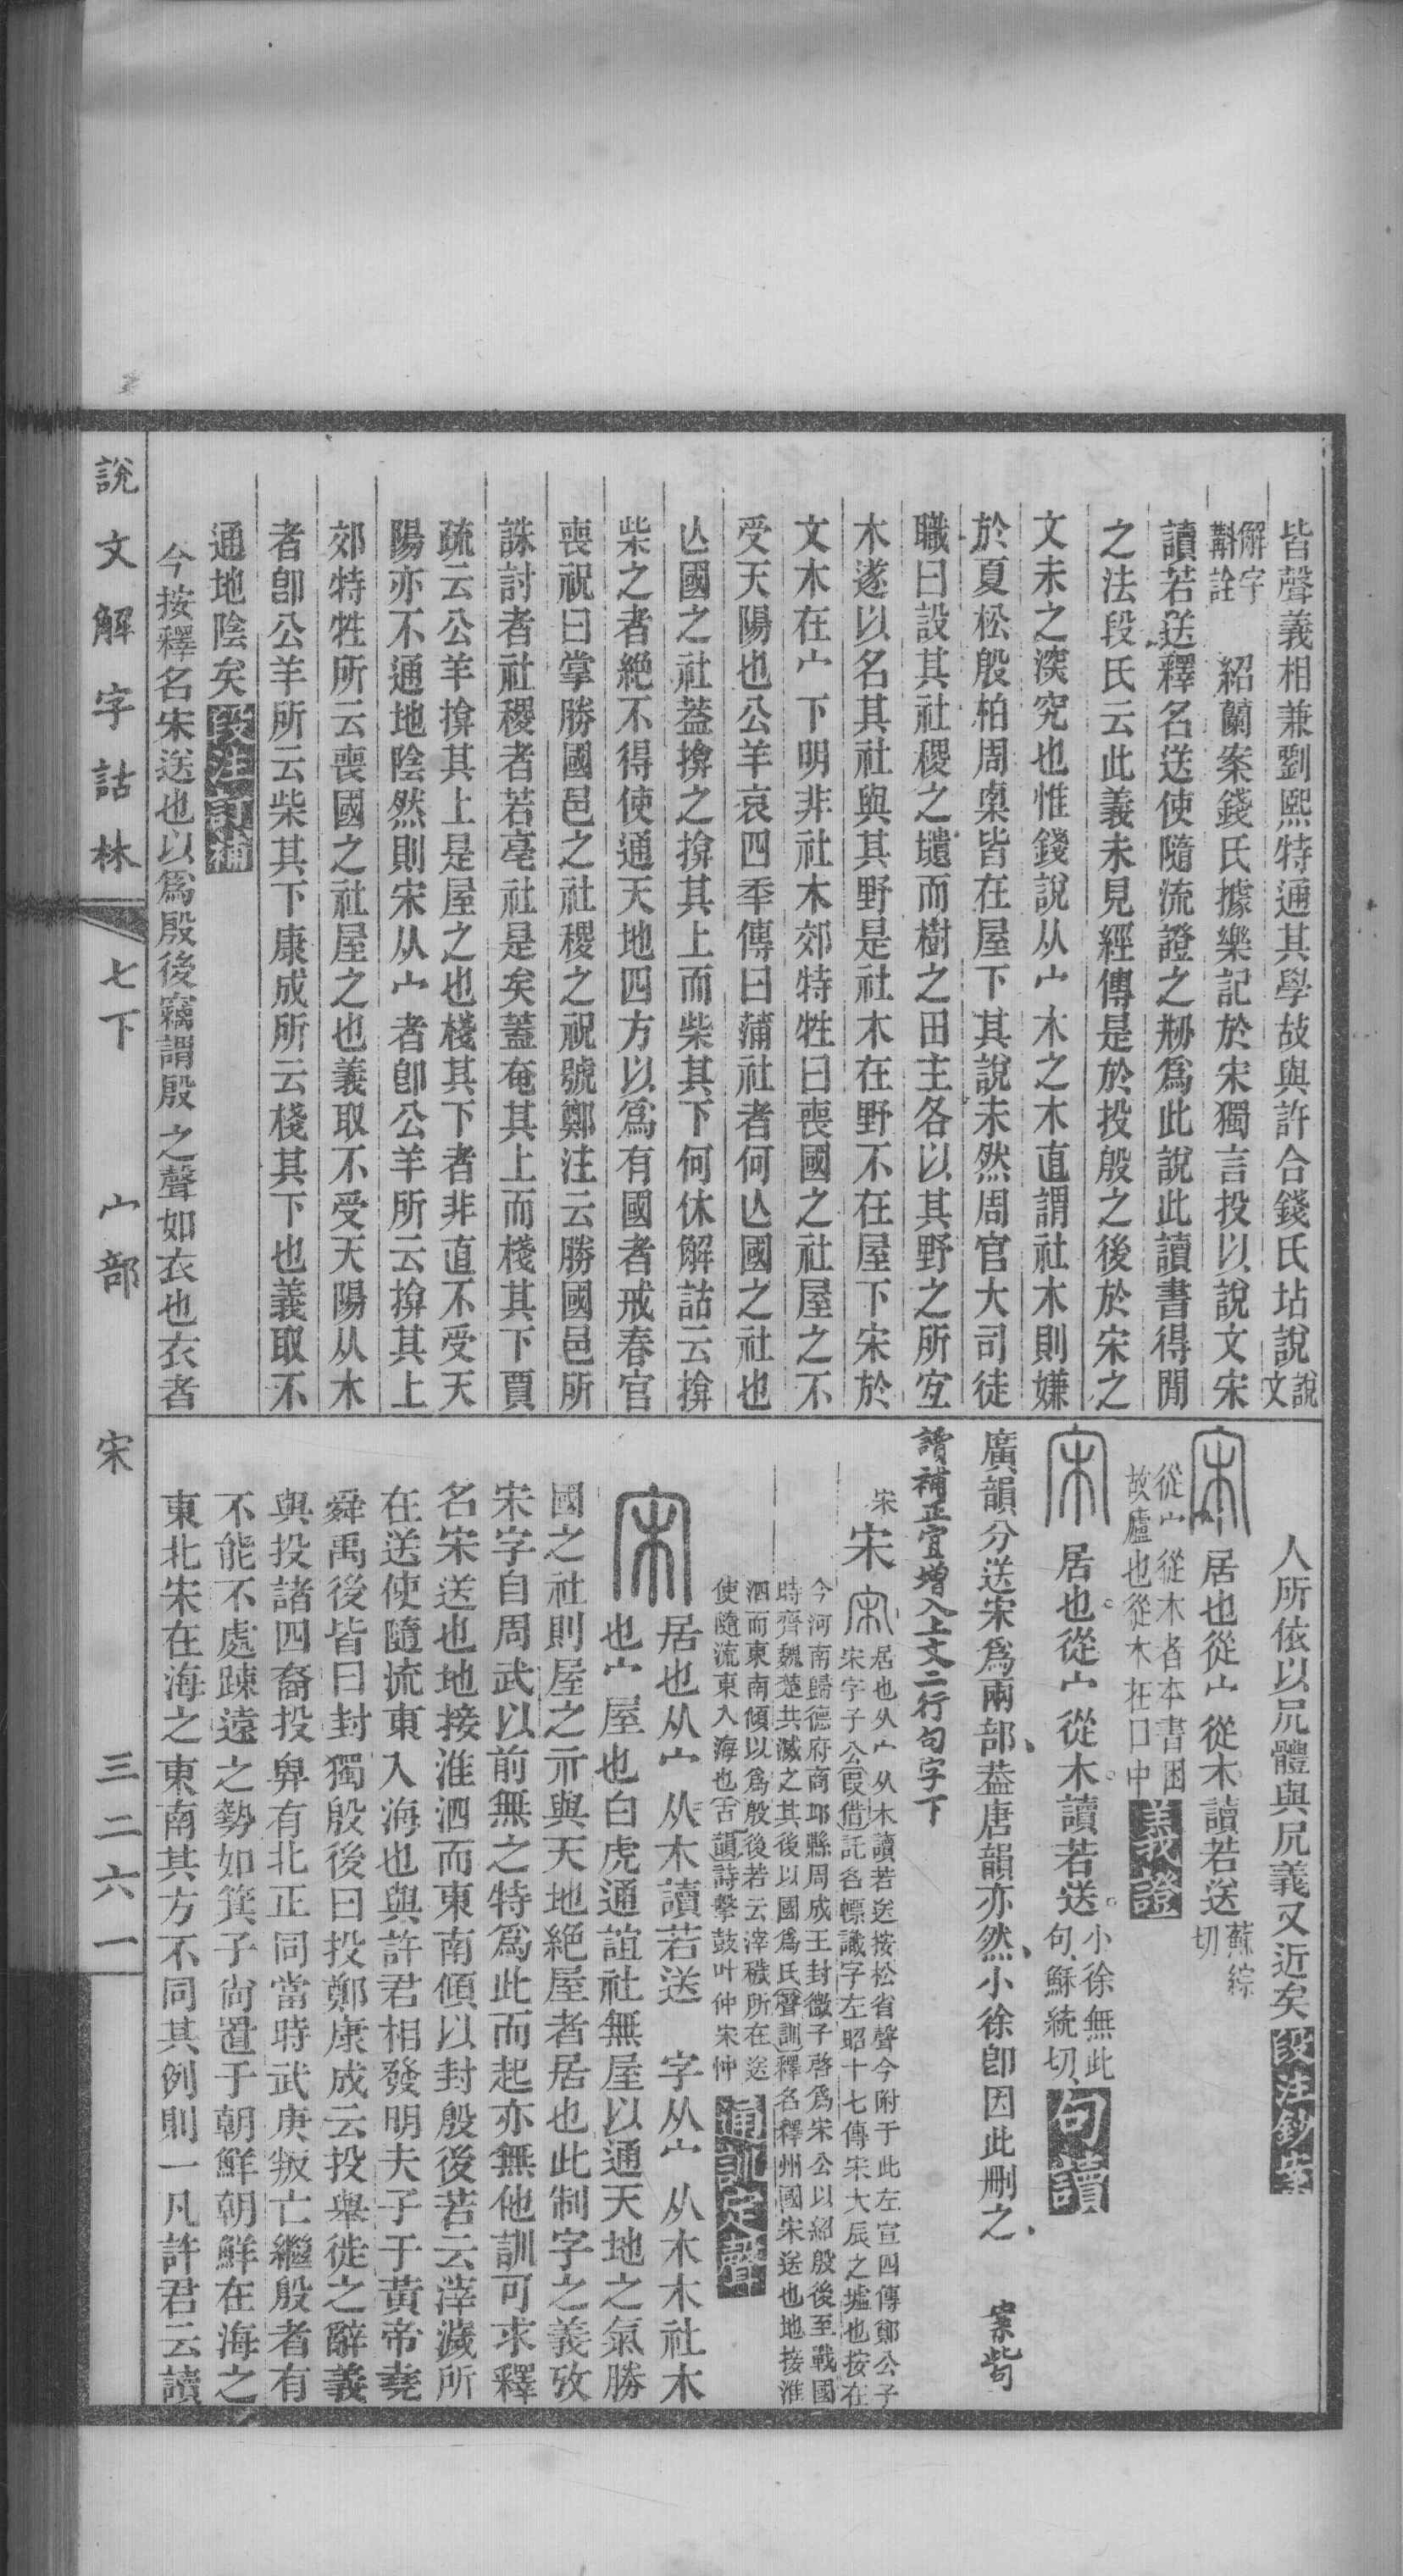 皆聲義相兼劉熙特通其學故與許合錢氏坫說文說
解字斠詮　紹蘭案錢氏據樂記於宋獨言投以說文宋
讀若送釋名送使隨流證之刱爲此說此讀書得閒
之法段氏云此義未見經傳是於投殷之後於宋之
文未之深究也惟錢說从宀木之木直謂社木則嫌
於夏松殷柏周㮚皆在屋下其說未然周官大司徒
職曰設其社稷之壝而樹之田主各以其野之所宜
木遂以名其社與其野是社木在野不在屋下宋於
文木在宀下明非社木郊特牲曰喪國之社屋之不
受天陽也公羊哀四秊傳曰蒲社者何亾國之社也
亾國之社蓋揜之揜其上而柴其下何休解詁云揜
柴之者絕不得使通天地四方以爲有國者戒春官
喪祝曰掌勝國邑之社稷之祝號鄭注云勝國邑所
誅討者社稷者若亳社是矣蓋奄其上而棧其下賈
疏云公羊揜其上是屋之也棧其下者非直不受天
陽亦不通地陰然則宋从宀者卽公羊所云揜其上
郊特牲所云喪國之社屋之也義取不受天陽从木
者卽公羊所云柴其下康成所云棧其下也義取不
通地陰矣段注訂補
今按釋名宋送也以爲殷後竊謂殷之聲如衣也衣者
人所依以凥體與凥義又近矣段注鈔案
宋居也從宀從木讀若送蘇綜切
從宀從木者本書困
故廬也從木在口中義證
宋居也從宀從木讀若送小徐無此句蘇統切句讀
廣韻分送宋爲兩部蓋唐韻亦然小徐卽因此刪之　案當句
讀補正宜增入上文二行句字下
宋宋宋居也从宀从木讀若送按松省聲今附于此左宣四傳鄭公子
宋字子公叚借託名幖識字左昭十七傳宋大辰之墟也按在
今河南歸德府商邱縣周成王封微子啓爲宋公以紹殷後至戰國
時齊魏楚共滅之其後以國爲氏聲訓釋名釋州國宋送也地接淮
泗而東南傾以爲殷後若云滓穢所在送
使隨流東入海也古韻詩擊鼓叶仲宋忡通訓定聲
宋居也从宀从木讀若送　字从宀从木木社木
也宀屋也白虎通誼社無屋以通天地之氣勝
國之社則屋之示與天地絕屋者居也此制字之義攷
宋字自周武以前無之特爲此而起亦無他訓可求釋
名宋送也地接淮泗而東南傾以封殷後若云滓濊所
在送使隨流東入海也與許君相發明夫子于黃帝堯
舜禹後皆曰封獨殷後曰投鄭康成云投舉徙之辭義
與投諸四裔投畀有北正同當時武庚叛亡繼殷者有
不能不處疎遠之勢如箕子尙置于朝鮮朝鮮在海之
東北宋在海之東南其方不同其例則一凡許君云讀
說文解字詁林　七下　宀部　宋　三二六一